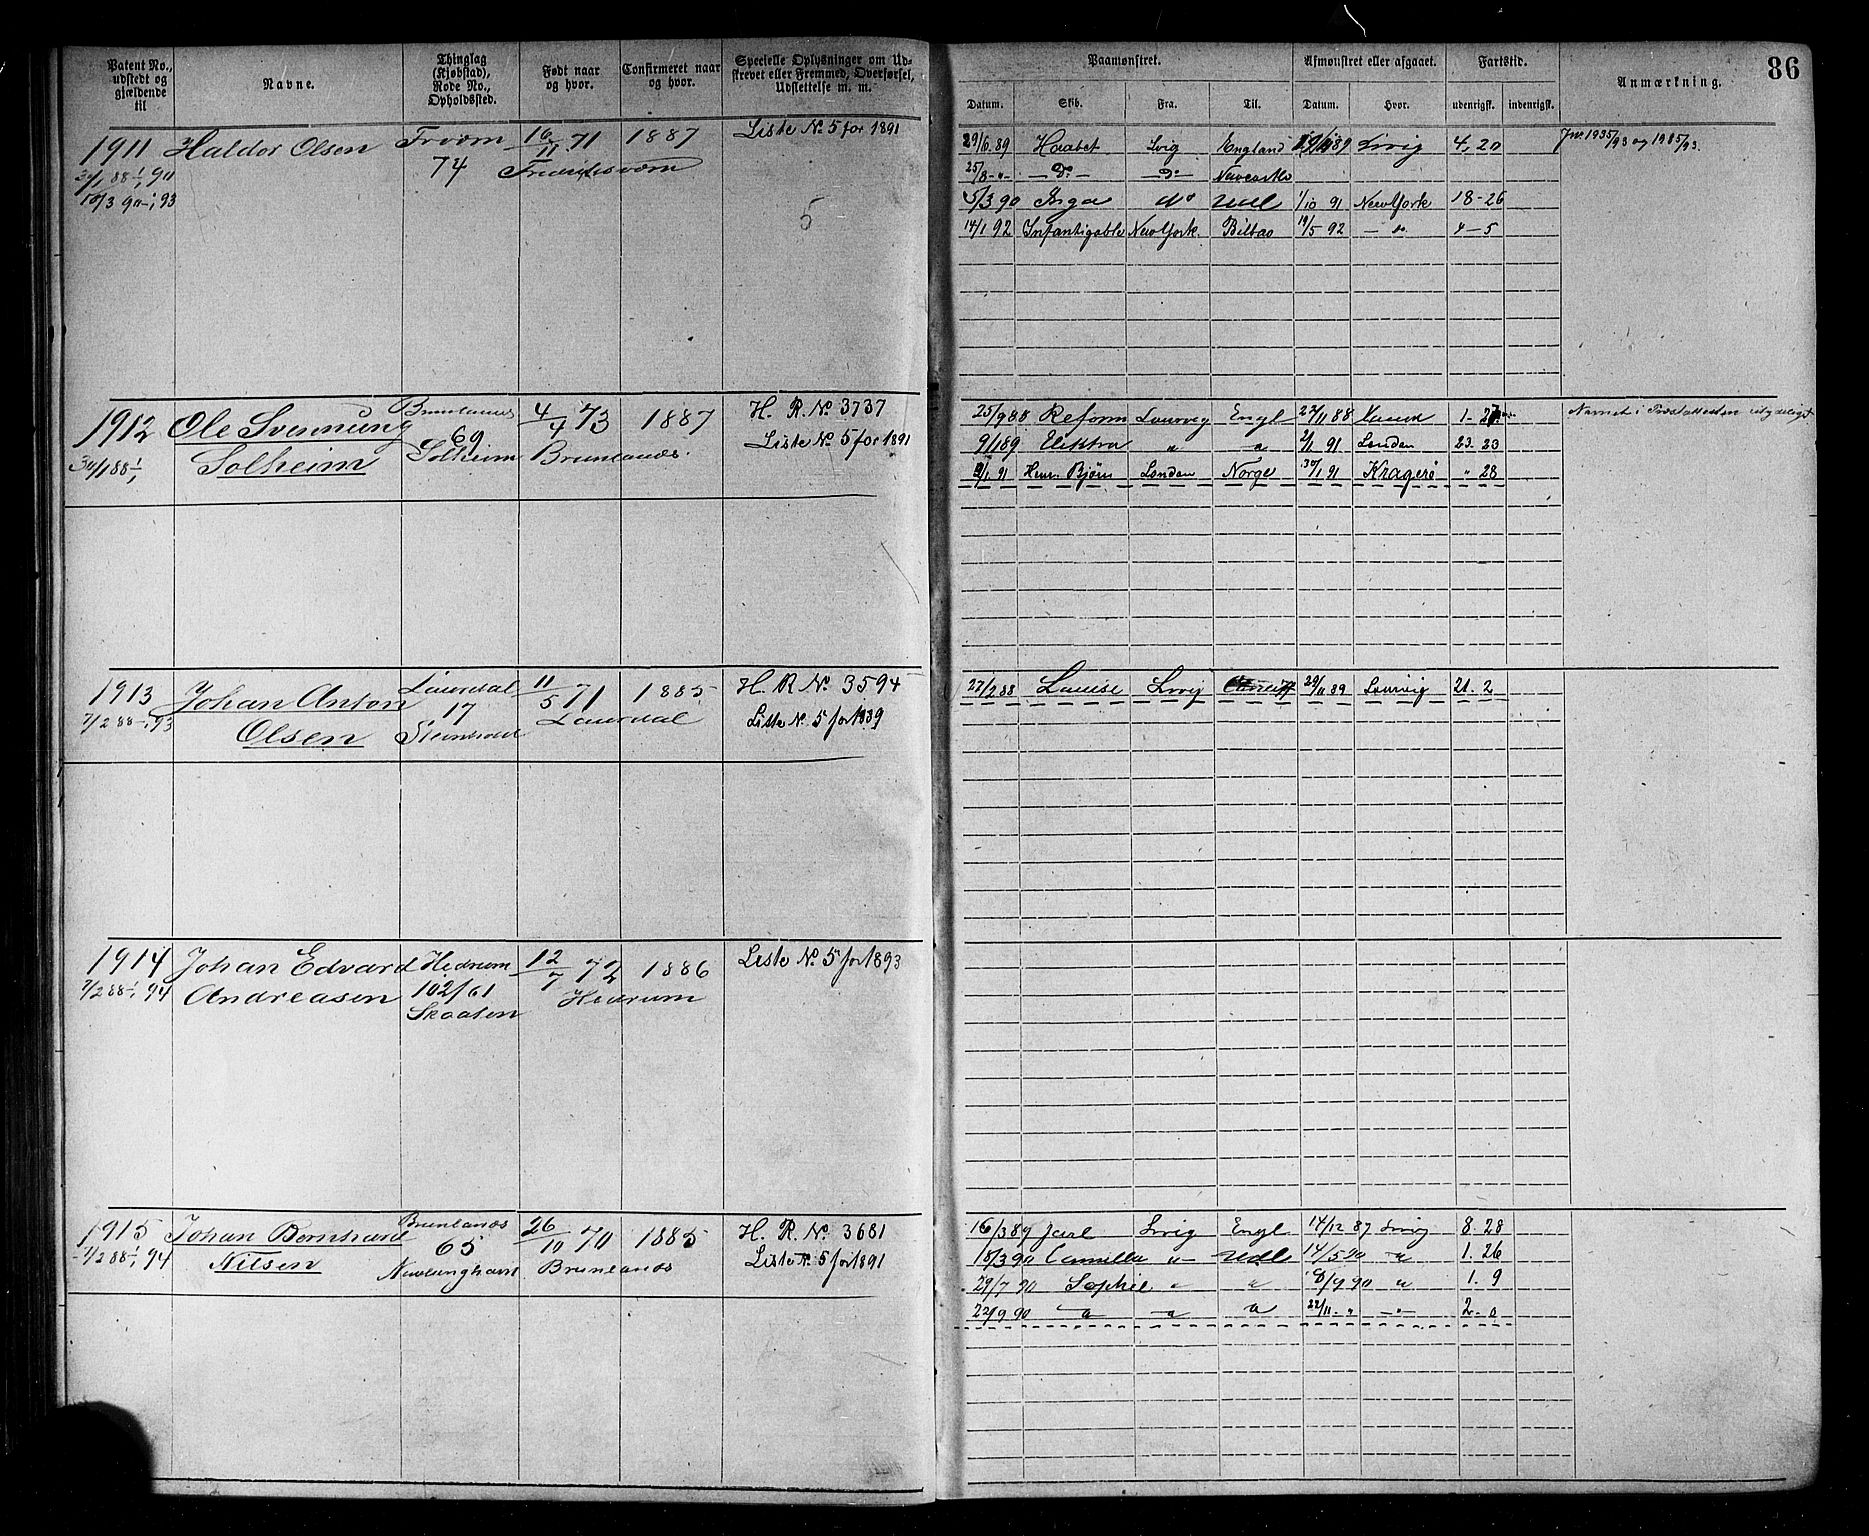 Patent No., udstedt og gjældende til
Navne.
Thinglag (Kjøbstad), Rode No., Opholdssted.
Født naar og hvor.
Confirmeret naar og hvor.
Specielle Oplysninger om Udskrevet eller Fremmed, Overførsel, Udslettelse m. m.
Paamønstret.
Datum.
Skib.
Fra.
Til.
Afmønstret eller afgaaet.
Datum.
Hvor.
Fartstid.
udenrigsk.
indenrigsk.
Anmærkning.
86
1911 Haldor Olsen 16/11 71 1887 Liste No 5 for 1891
74 Fredriksværn
5
29/6 89 Haabet Lvig England Lvig 4, 20
25/8 - " - - Do - - Do -
5/3 90 Inga Do Udl 1/10 91 NewYork 18-26
14/1 92 NewYork Bilbao 19/5 92 - " 4-5
Jnr 1935/93 og 1985/93.
1912 Ole Svennung Solheim Brunlanæs 69 Solheim 4/4 73 1887 Brunlanæs. H. R. No 3737
30/1 88 Liste No 5 for 1891
25/9 88 Reform Laurvig Engl 22/11 88
9/1 89 Elektra " " 2/1 91 London 23-23
Henr. Bjørn London Norge 30/1 91 Kragerø " 28
1913 Johan Anton Olsen Laurdal 17 11/5 71 1885 Laurdal H. R. No 3594
7/2 88 -, 93 Liste No 5 for 1889
27/2 88 Louise Lvig 29/11 89 Laurvig 21. 2
1914 Johan Edvard Andreasen Hedrum 102/61 Skaaten 12/7 72 1886 Hedrum Liste No 5 for 1893
7/2 88 -, 94
1915 Johan Bernhard Nilsen Brunlanæs 65 Nevlunghavn 26/10 70 1885 Brunlanæs H. R. No 3681
7/2 88 -, 94 Liste No 5 for 1891
16/3 89 Jarl Lvig Engl 14/12 87 Lvig 8. 28
18/3 90 Camilla " Udl 14/5 90 " 1. 26
29/7 90 Sophie " " 8/9 90 " 1. 9
22/9 90 " " " 22/11 - " - " - 2. 0